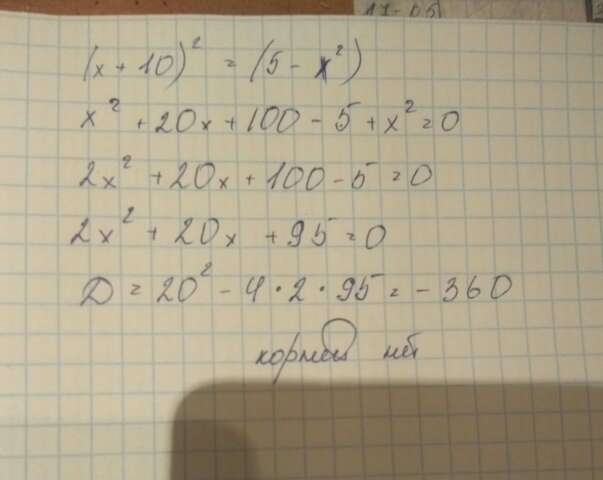 17-05
(x + 10)² = (5 - x²)
x² + 20x + 100 - 5 + x² = 0
2x² + 20x + 100 - 5 = 0
2x² + 20x + 95 = 0
D = 20² - 4 · 2 · 95 = - 360
корней нет